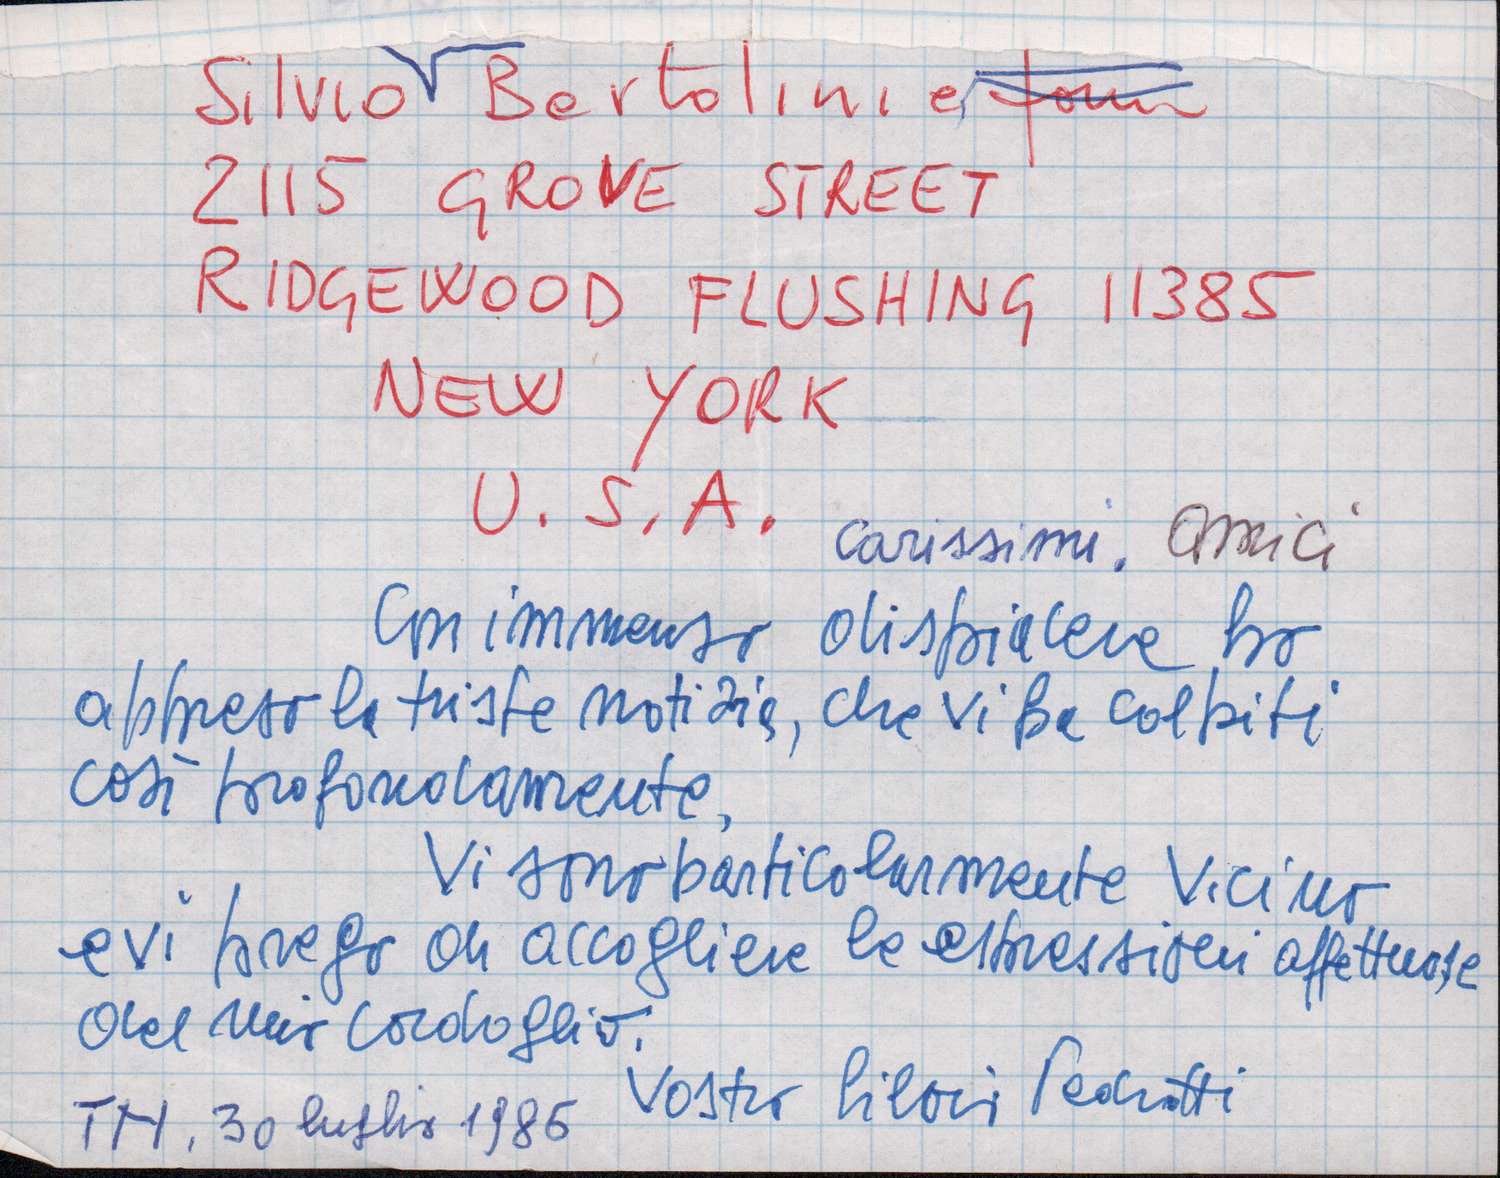 Silvio Bertolini e
2115 GROVE STREET
RIDGEWOOD FLUSHING 11385
NEW YORK
U.S.A.
Carissimi. Amici
Con immenso dispiacere ho
appreso la triste notizia, che vi ha colpiti
così profondamente,
Vi sono particolarmente vicino
e vi prego di accogliere le espressioni affettuose
del mio cordoglio.
Vostro Silvio Pedrotti
TN, 30 luglio 1986